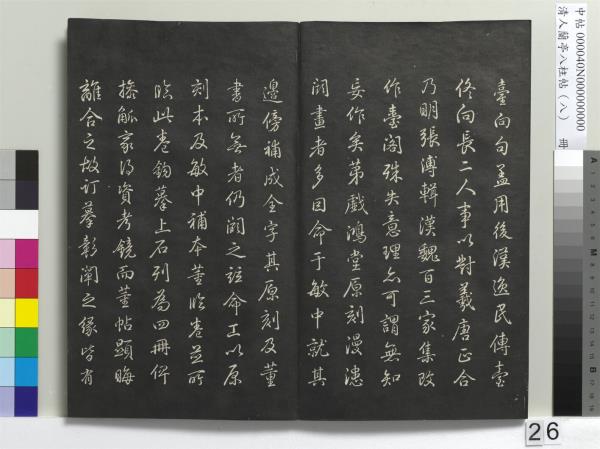 臺向句孟用後漢逸民傳臺
佟向長二人事以對羲唐正合
乃明張溥輯漢魏百三家集改
作臺閣殊失意理亦可謂無知
妄作矣第戲鴻堂原刻漫漶
闕畫者多因命于敏中就其
邊傍補成全字其原刻及董
書所無者仍闕之茲命工以原
刻本及敏中補本董臨卷並所
臨此卷鉤摹上石列為四冊俾
操觚家得資考鏡而董帖顯晦
離合之故訂摹彰闡之緣皆有
中帖 000040N000000000
清人蘭亭八柱帖（八） 冊
26